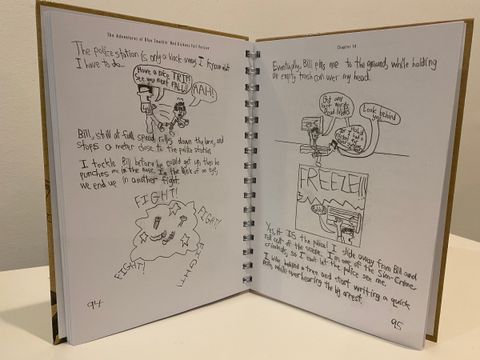 The Adventures of Blue Smashin' And Kickass Pal Person
The police station is only a block away. I know what
I have to do.
Have a nice TRIP!
See you next
FALL!
AAH!
Bill, still at full speed, rolls down the lane, and
stops a meter close to the police station.
I tackle Bill before he could get up, then he
punches me in the nose. In the blink of an eye,
we end up in another fight.
FIGHT!
FIGHT!
FIGHT!
FIGHT!
94
Chapter 14
Eventually, Bill pins me to the ground, while holding
an empty trash can over my head.
Look behind
you
FREEZE!!!
Yes, it IS the police! I slide away from Bill and
roll out of the scene. I'm one of the
criminals, so I can't let the police see me.
I hide behind a tree and start writing a quick
while overhearing the big arrest.
95